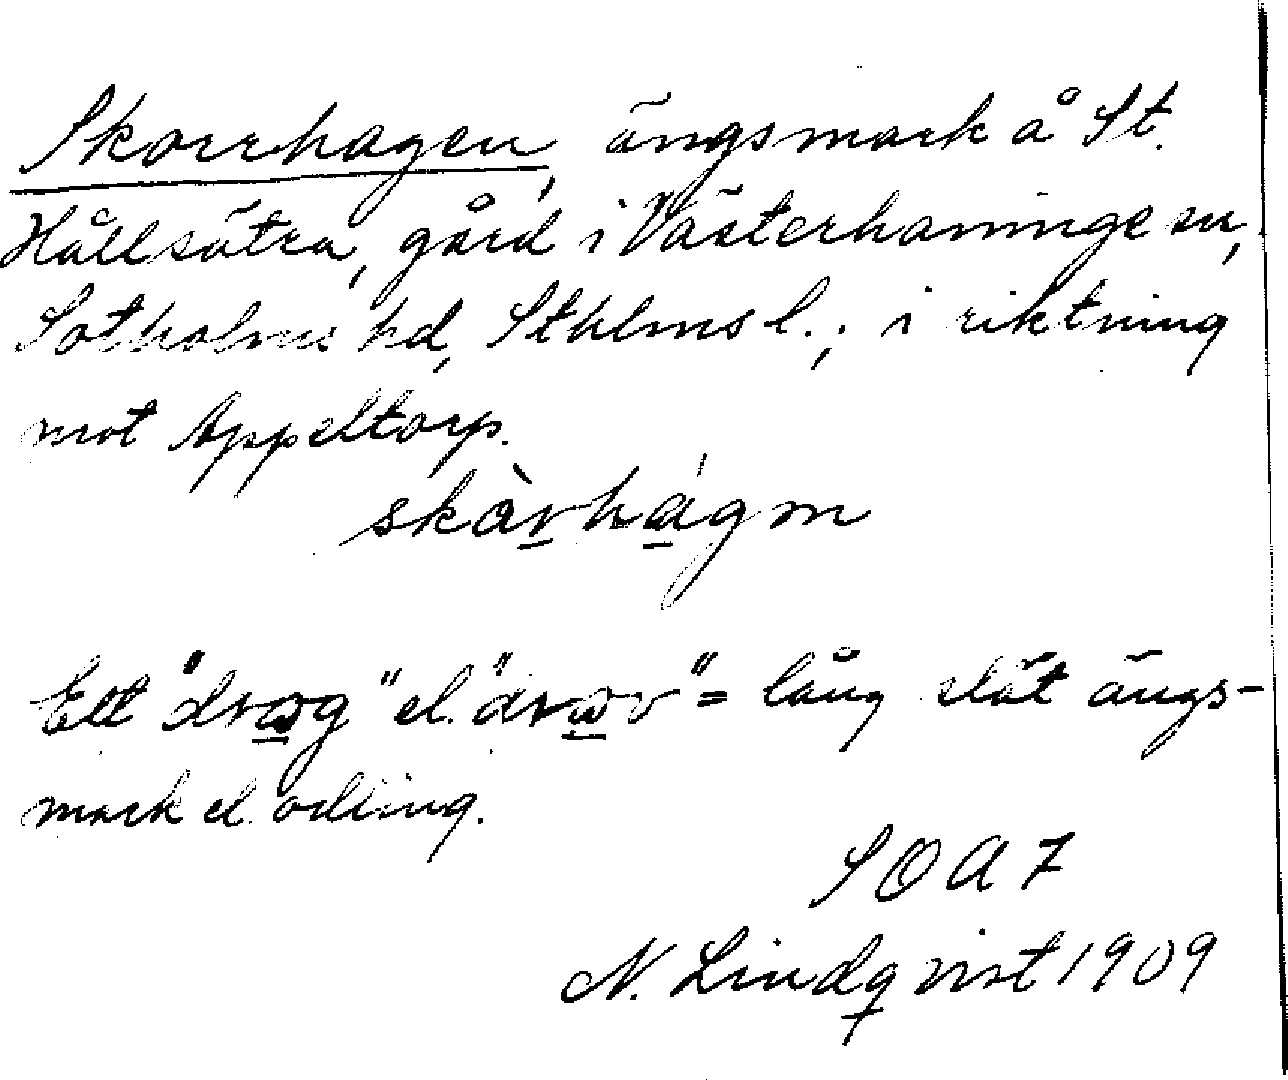 Skorrhagen, ängsmark å St.
Hållsätra, gård i Västerhaninge sn,
Sotholms hd, Sthlms l.; i riktning
mot Appeltorp.
skàrhágm
Ett "drωg" el. "drωv" = lång slät ängs-
mark el. odling.
SOA 7
N. Lindqvist 1909